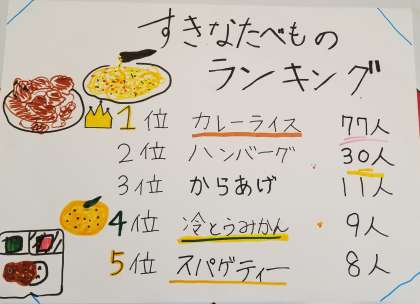 すきなたべもの
ランキング
1位 カレーライス 77人
2位 ハンバーグ 30人
3位 からあげ 11人
4位 冷とうみかん 9人
5位 スパゲティー 8人